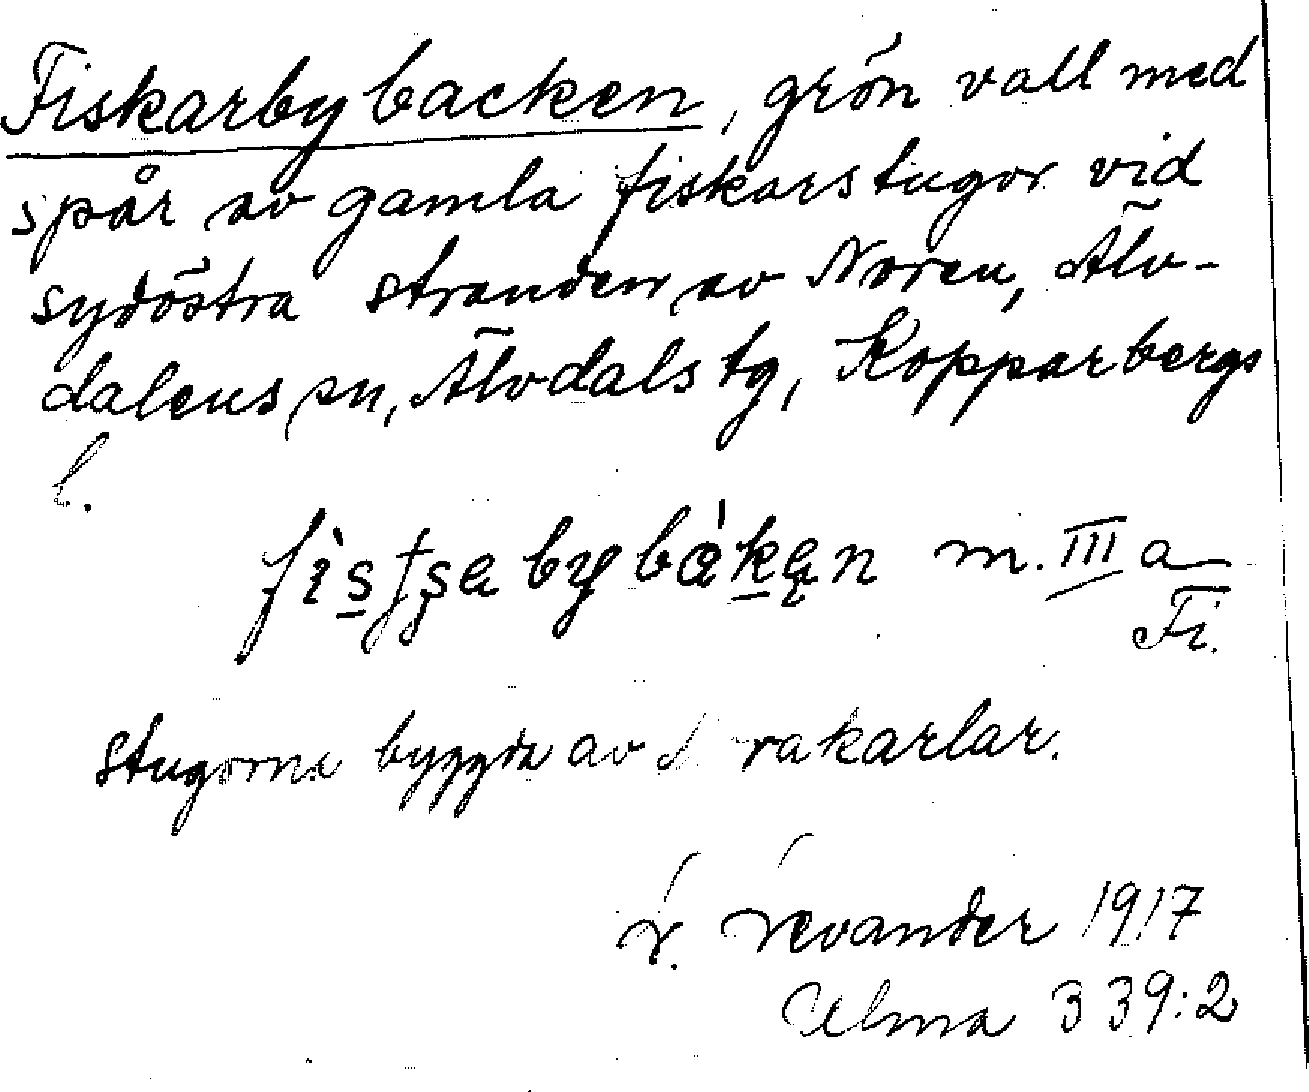 Fiskarbybacken, grön vall med
spår av gamla fiskarstugor vid
sydöstra stranden av Noren, Älv-
dalens sn, Älvdals tg, Kopparbergs
l.
m. III a
Fi.
stugorna byggda av
L. Levander 1917
Ulma 339:2